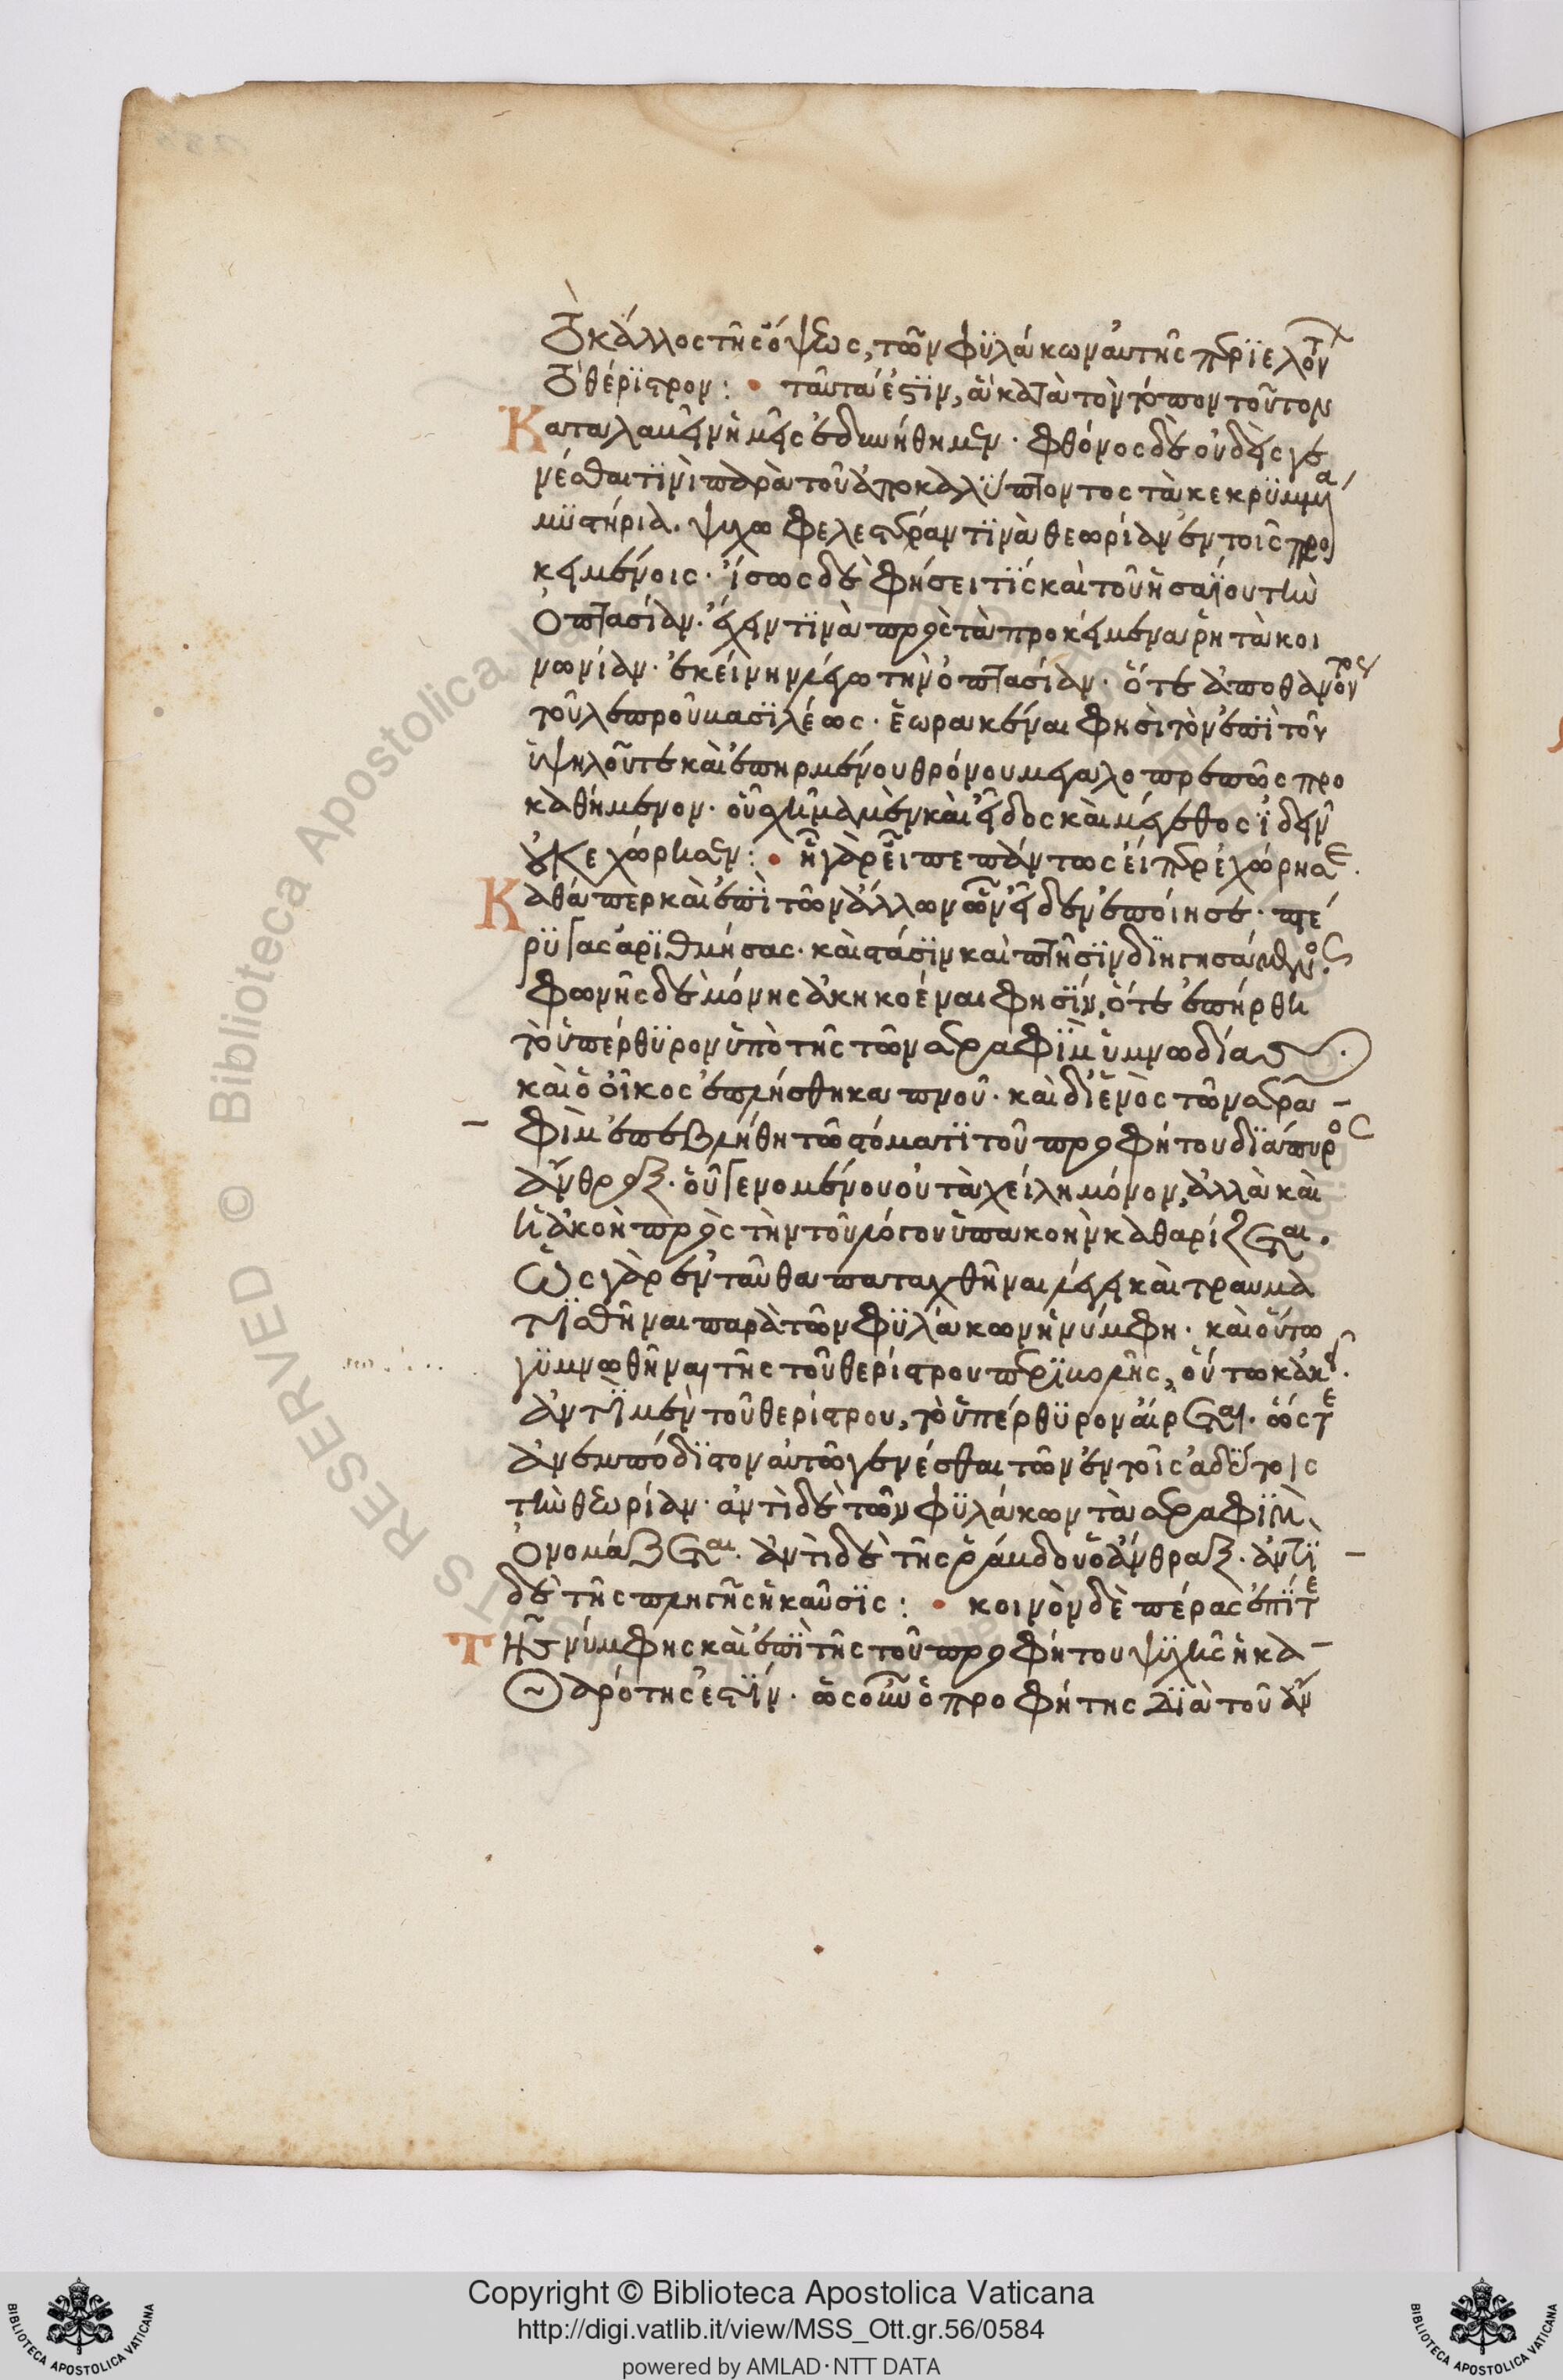 Τὸ κάλλος τῆς ὄψεως, τῶν φυλάκων αὐτῆς περιελόντ
τὸ θέριστρον : • ταῦτά ἐστιν, ἃ κατὰ τὸν τόπον τοῦτον
Καταλαβεῖν ἡμεῖς ἐδυνήθημεν · φθόνος δὲ οὐδεὶς γε
νέσθαι τινὶ παρὰ τοῦ ἀποκαλύπτοντος τὰ κεκρυμμένα
μυστήρια. ψυχωφελεστέραν τινὰ θεωρίαν ἐν τοῖς προ
κειμένοις · ἴσως δὲ φήσει τίς καὶ τοῦ ἡσαΐου τὴν
ὀπτασίαν · ἔχειν τινὰ πρὸς τὰ προκείμενα ῥητὰ κοι
νωνίαν · ἐκείνην λέγω τὴν ὀπτασίαν · ὅτε ἀποθανόντος
τοῦ λεπροῦ βασιλέως · ἑωρακέναι φησὶ τὸν ἐπὶ τοῦ
ὑψηλοῦ τε καὶ ἐπηρμένου θρόνου μεγαλοπρεπῶς προ
καθήμενον · οὗ σχῆμα μὲν καὶ εἶδος καὶ μέγεθος ἰδεῖν
οὐκ ἐχώρησεν : • ἦ γὰρ ἂν εἶπε πάντως εἴπερ ἐχώρησε.
Καθάπερ καὶ ἐπὶ τῶν ἄλλων ὧν εἶδεν ἐποίησε · πτέ
ρυγας ἀριθμήσας · καὶ στάσιν καὶ πτῆσιν διηγησάμενος.
φωνῆς δὲ μόνης ἀκηκοέναι φησίν, ὅτε ἐπήρθη
τὸ ὑπέρθυρον ὑπὸ τῆς τῶν σεραφὶμ ὑμνωδίας.
καὶ ὁ οἶκος ἐπλήσθη καπνοῦ · καὶ δι' ἑνὸς τῶν σερα-
φὶμ ἐπεβλήθη τῶ στόματι τοῦ προφήτου διάπυρος
ἄνθραξ · οὗ γενομένου οὐ τὰ χείλη μόνον, ἀλλὰ καὶ
ἡ ἀκοὴ πρὸς τὴν τοῦ λόγου ὑπακοὴν καθαρίζεται.
Ὡς γὰρ ἐνταῦθα παταχθῆναι λέγει καὶ τραυμα
τισθῆναι παρὰ τῶν φυλάκων ἡ νύμφη · καὶ οὕτω
γυμνωθῆναι τῆς τοῦ θερίστρου περιβολῆς, οὕτω κἀκεῖ.
ἀντὶ μὲν τοῦ θερίστρου, τὸ ὑπέρθυρον αἴρεται · ὥστε
ἀνεμπόδιστον αὐτῶ γενέσθαι τῶν ἐν τοῖς ἀδύτοις
τὴν θεωρίαν · ἀντὶ δὲ τῶν φυλάκων τὰ σεραφὶμ
ὀνομάζεται · ἀντὶ δὲ τῆς ῥάβδου ὁ ἄνθραξ · ἀντὶ
δὲ τῆς πληγῆς ἡ καῦσις : • κοινὸν δὲ πέρας ἐπί τε
Τῆς νύμφης καὶ ἐπὶ τῆς τοῦ προφήτου ψυχῆς ἡ κα-
θαρότης ἐστίν · ὡς οὖν ὁ προφήτης διὰ τοῦ ἄν
Copyright © Biblioteca Apostolica Vaticana
http://digi.vatlib.it/view/MSS_Ott.gr.56/0584
powered by AMLAD·NTT DATA